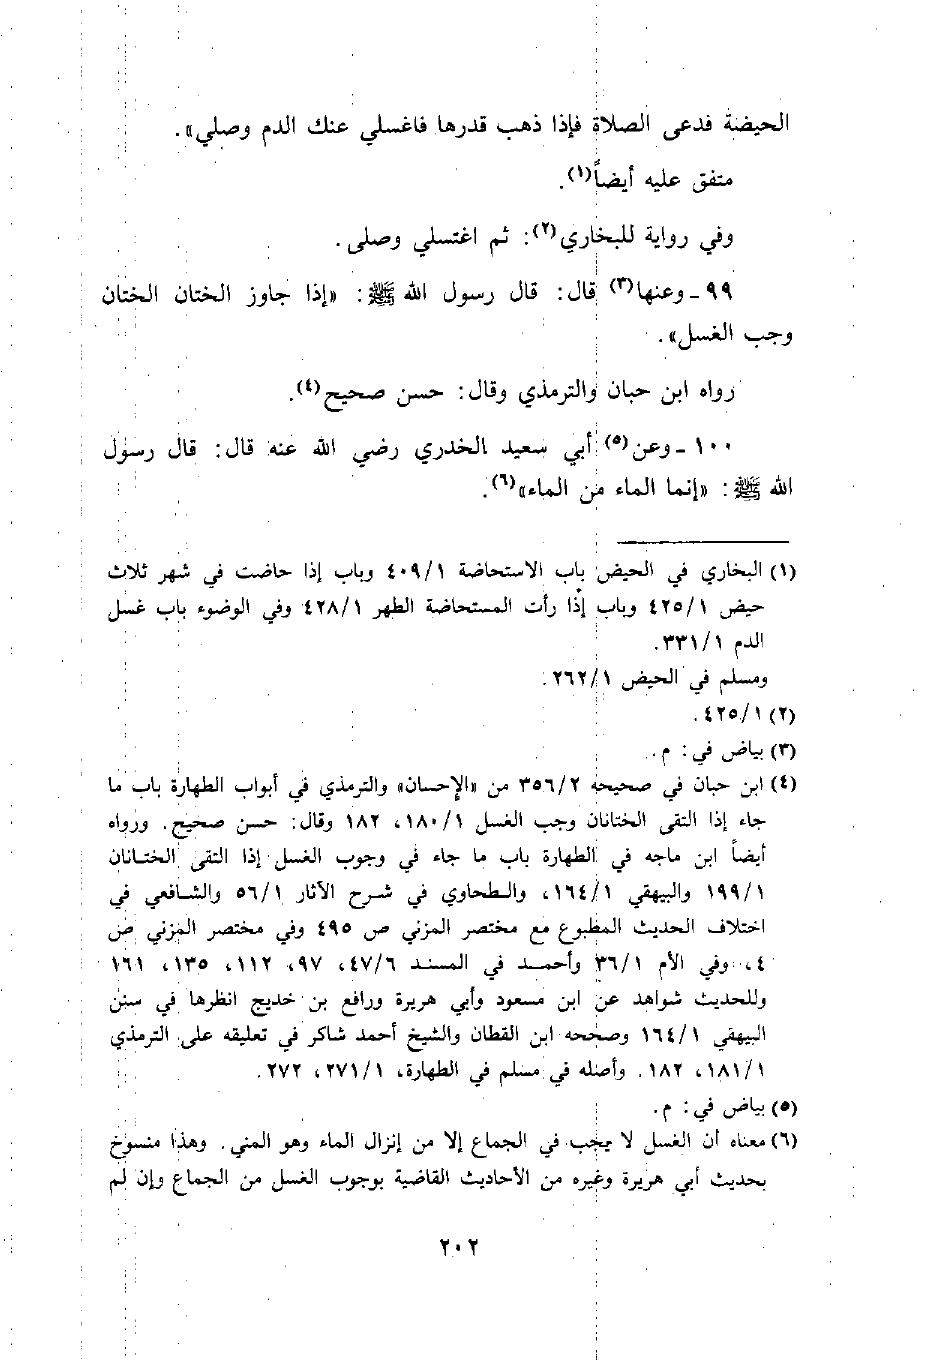 الحيضة فدعى الصلاة فإذا ذهب قدرها فاغسلي عنك الدم وصلي».
متفق عليه أيضاً(١).
وفي رواية للبخاري(٢): ثم اغتسلي وصلى.
٩٩ ـ وعنها(٣) قال: قال رسول الله ﷺ: «إذا جاوز الختان الختان
وجب الغسل».
رواه ابن حبان والترمذي وقال: حسن صحيح(٤).
١٠٠ ـ وعن(٥) أبي سعيد الخدري رضي الله عنه قال: قال رسول
الله ﷺ: «إنما الماء من الماء»(٦).
(١) البخاري في الحيض باب الاستحاضة ٤٠٩/١ وباب إذا حاضت في شهر ثلاث
حيض ٤٢٥/١ وباب إذا رأت المستحاضة الطهر ٤٢٨/١ وفي الوضوء باب غسل
الدم ٣٣١/١.
ومسلم في الحيض ٢٦٢/١.
(٢) ٤٢٥/١.
(٣) بياض في: م.
(٤) ابن حبان في صحيحه ٣٥٦/٢ من «الإحسان» والترمذي في أبواب الطهارة باب ما
جاء إذا التقى الختانان وجب الغسل ١٨٠/١، ١٨٢ وقال: حسن صحيح. ورواه
أيضاً ابن ماجه في الطهارة باب ما جاء في وجوب الغسل إذا التقى الختانان
١٩٩/١ والبيهقي ١٦٤/١، والطحاوي في شرح الآثار ٥٦/١ والشافعي في
اختلاف الحديث المطبوع مع مختصر المزني ص ٤٩٥ وفي مختصر المزني ص
٤، وفي الأم ٣٦/١ وأحمد في المسند ٤٧/٦، ٩٧، ١١٢، ١٣٥، ١٦١
وللحديث شواهد عن ابن مسعود وأبي هريرة ورافع بن خديج انظرها في سنن
البيهقي ١٦٤/١ وصححه ابن القطان والشيخ أحمد شاكر في تعليقه على الترمذي
١٨١/١، ١٨٢. وأصله في مسلم في الطهارة، ٢٧١/١، ٢٧٢.
(٥) بياض في: م.
(٦) معناه أن الغسل لا يجب في الجماع إلا من إنزال الماء وهو المني. وهذا منسوخ
بحديث أبي هريرة وغيره من الأحاديث القاضية بوجوب الغسل من الجماع وإن لم
٢٠٢